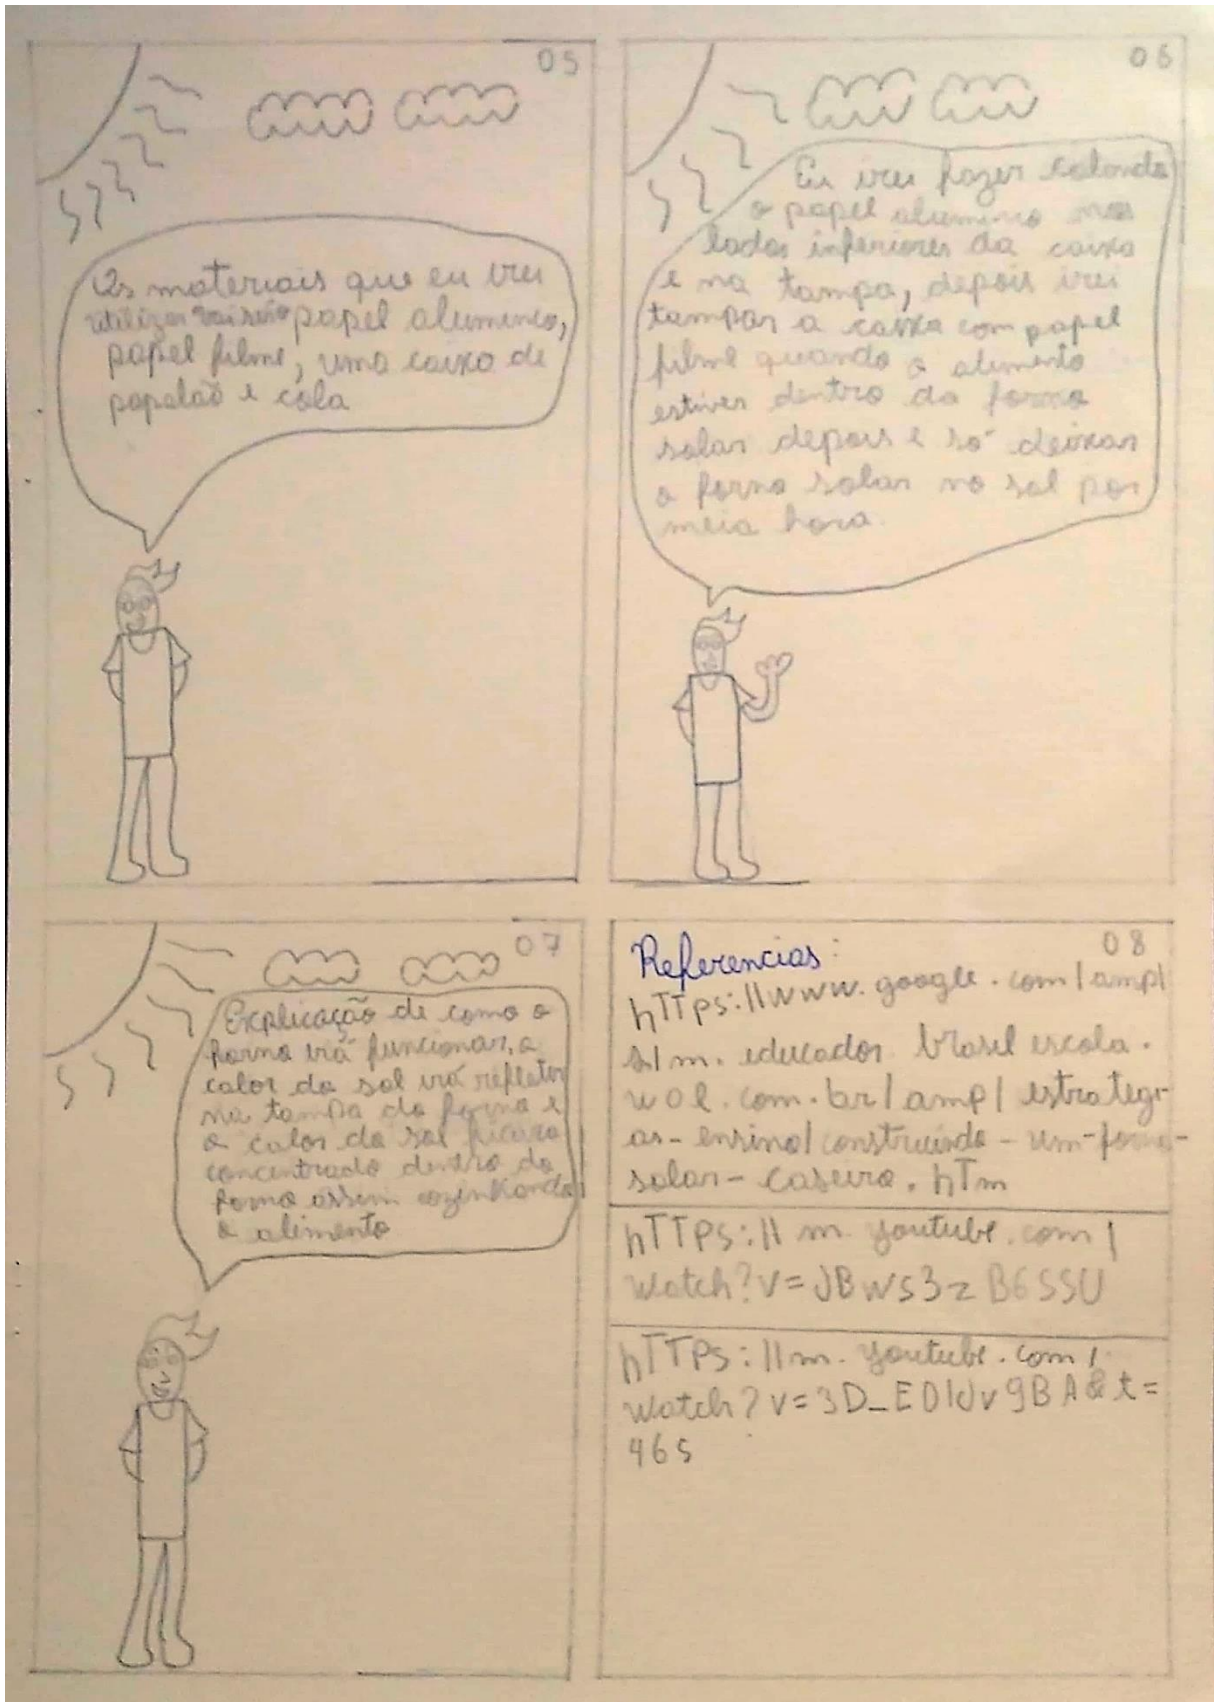 05
Os materiais que eu irei
utilizar vai serão papel alumineo,
papel filme, uma caixa de
papelão e cola
06
Eu irei fazer colando
o papel alumineo nos
lados inferiores da caixa
e na tampa, depois irei
tampar a caixa com papel
filme quando o alimento
estiver dentro do forno
solar depois e só deixar
o forno solar no sol por
meia hora.
07
Explicação de como o
forno irá funcionar, o
calor do sol irá refletir
na tampa do forno e
o calor do sol ficara
concentrado dentro do
forno assim cozinhando
o alimento
08
Referencias:
hTTps://www.google.com/amp/
s/m.educador.brasil escola.
uol.com.br/amp/estrategi-
as-ensino/construindo-um-forno-
solar-caseiro.hTm
hTTps://m.youtube.com/
watch?v=JBws3zB6SSU
hTTps://m.youtube.com/
watch?v=3D_E01Jv9BA&t=
46s